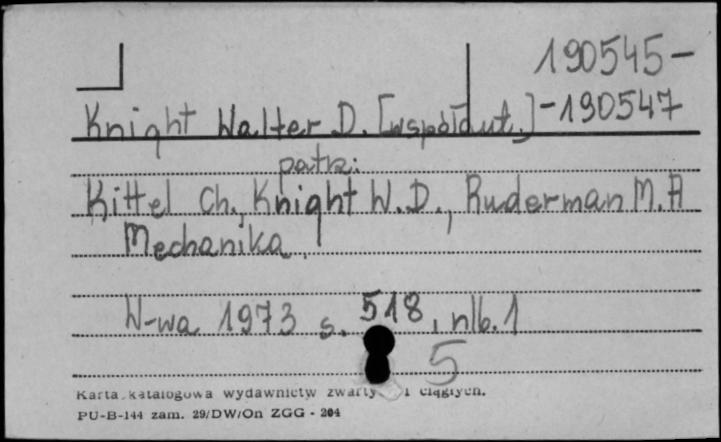 190545-
Knight Walter D. [współaut.] -190547
patrz:
Kittel Ch., Knight W.D., Ruderman M.A
Mechanika.
W-wa 1973 s. 518, nlb. 1
5
Karta katalogowa wydawnictw zwarty i ciągłych.
PU-B-144 zam. 29/DW/On ZGG - 204